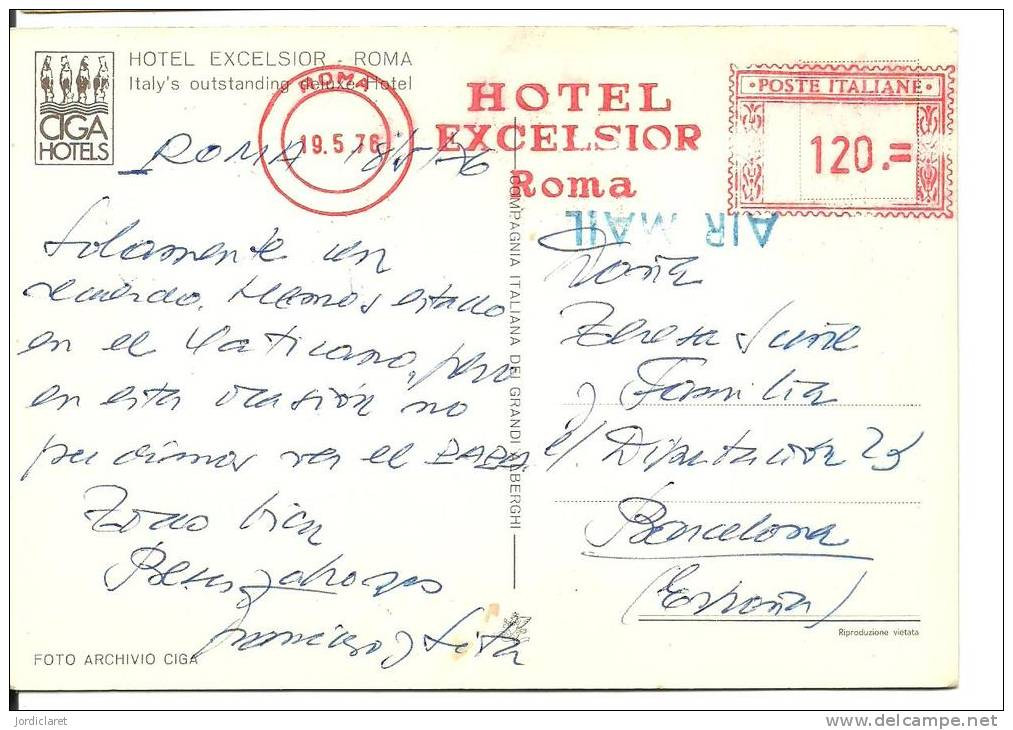 HOTEL EXCELSIOR - ROMA
Italy's outstanding deluxe Hotel
CIGA
HOTELS
ROMA
19.5.76
HOTEL
EXCELSIOR
Roma
POSTE ITALIANE
120.=
AIR MAIL
ROMA 18/5/76
Solamente un
recuerdo. Hemos estado
en el Vaticano, pero
en esta ocasión no
pudimos ver el PAPA.
Todo bien
Besos y abrazos
y Lita
COMPAGNIA ITALIANA DEI GRANDI ALBERGHI
Doña
Teresa Suñe
y Familia
c/ Diputación 25
Barcelona
(España)
Riproduzione vietata
FOTO ARCHIVIO CIGA
jordiclaret
www.delcampe.net